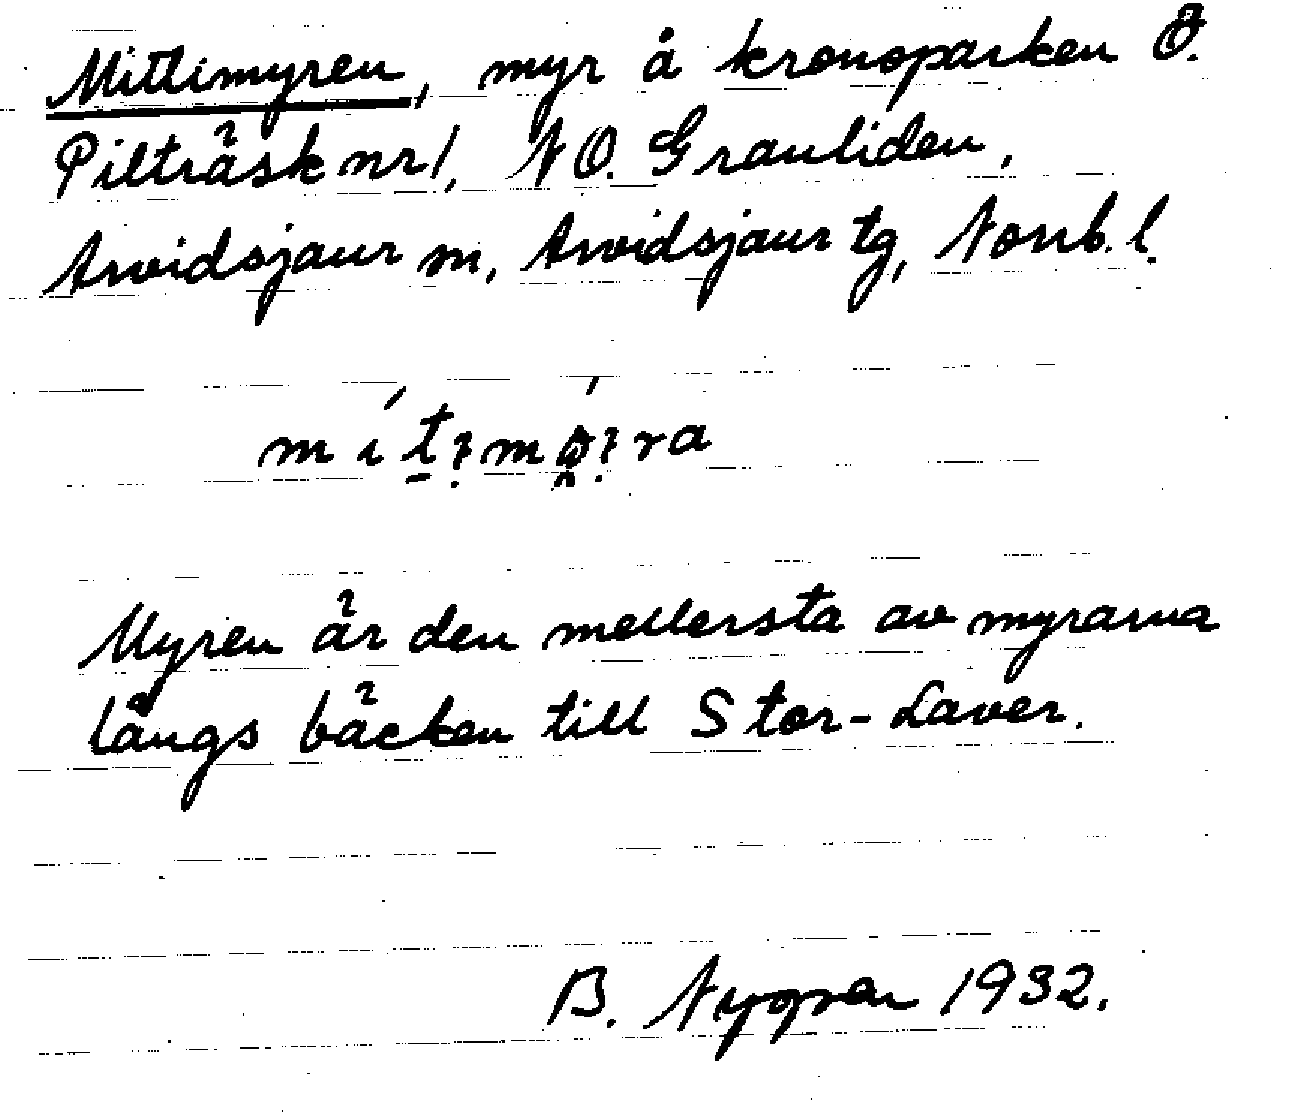 Mittimyren, myr å kronoparken Ö.
Pilträsk nr 1, NO. Granliden,
Arvidsjaur sn, Arvidsjaur tg, Norrb. l.
Myren är den mellersta av myrarna
längs bäcken till Stor-Laver.
B. Nygren 1932.